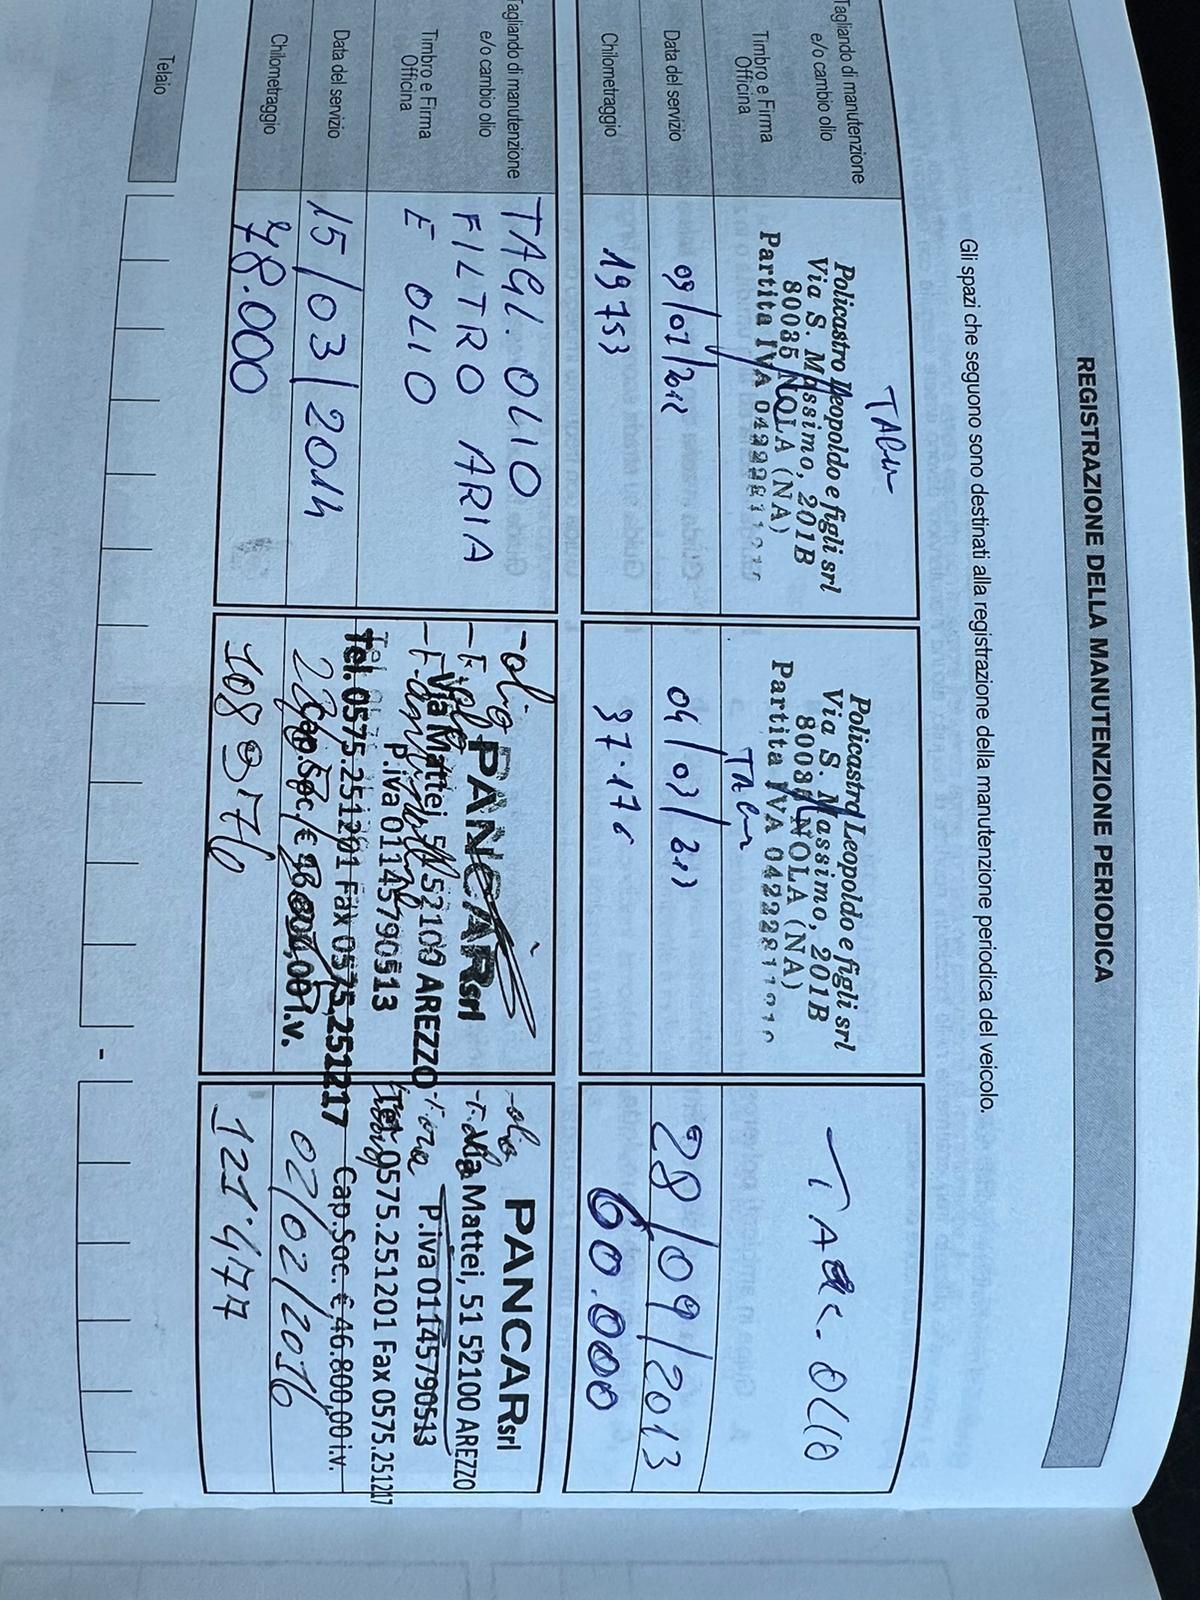 REGISTRAZIONE DELLA MANUTENZIONE PERIODICA
Gli spazi che seguono sono destinati alla registrazione della manutenzione periodica del veicolo.
Tagliando di manutenzione
e/o cambio olio
Timbro e Firma
Officina
Data del servizio
Chilometraggio
Policastro Leopoldo e figli srl
Via S. Massimo, 201B
80035 NOLA (NA)
Partita IVA
19753
Policastro Leopoldo e figli srl
Via S. Massimo, 201B
80035 NOLA (NA)
Partita IVA
OLIO
28/09/2013
60.000
Tagliando di manutenzione
e/o cambio olio
Timbro e Firma
Officina
Data del servizio
Chilometraggio
TAGL. OLIO
FILTRO ARIA
E OLIO
15/03/2014
78.000
- olio
PANCAR srl
Via Mattei, 51 52100 AREZZO
P.iva 01145790513
Tel. 0575.251201 Fax 0575.251217
Cap.Soc. €
- olio
PANCAR srl
Via Mattei, 51 52100 AREZZO
P.iva 01145790513
Tel. 0575.251201 Fax 0575.251217
Cap.Soc. € 46.800,00 i.v.
02/02/2016
121.477
Telaio
-